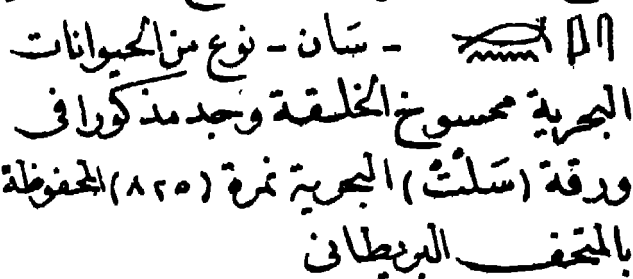 - سَان - نوع من الحيوانات
البحرية ممسوخ الخلقة وجد مذكورا فى
ورقة (سَلْتْ) البحرية نمرة (٨٢٥) المحفوظة
بالمتحف البريطانى